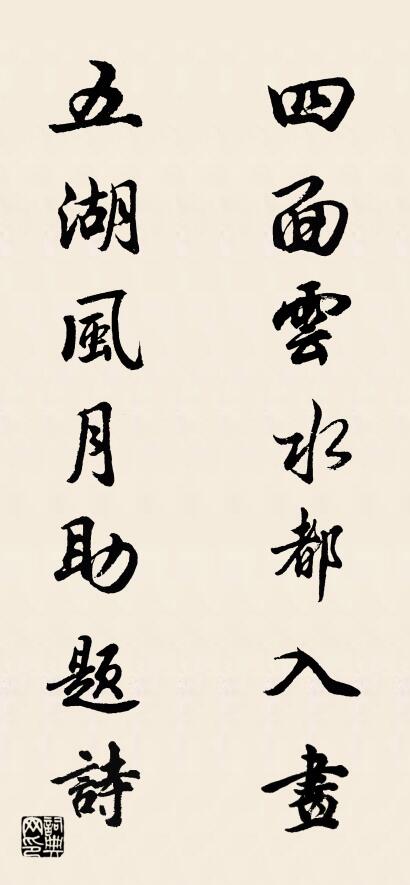 四面雲水都入畫
五湖風月助題詩
詞典網印